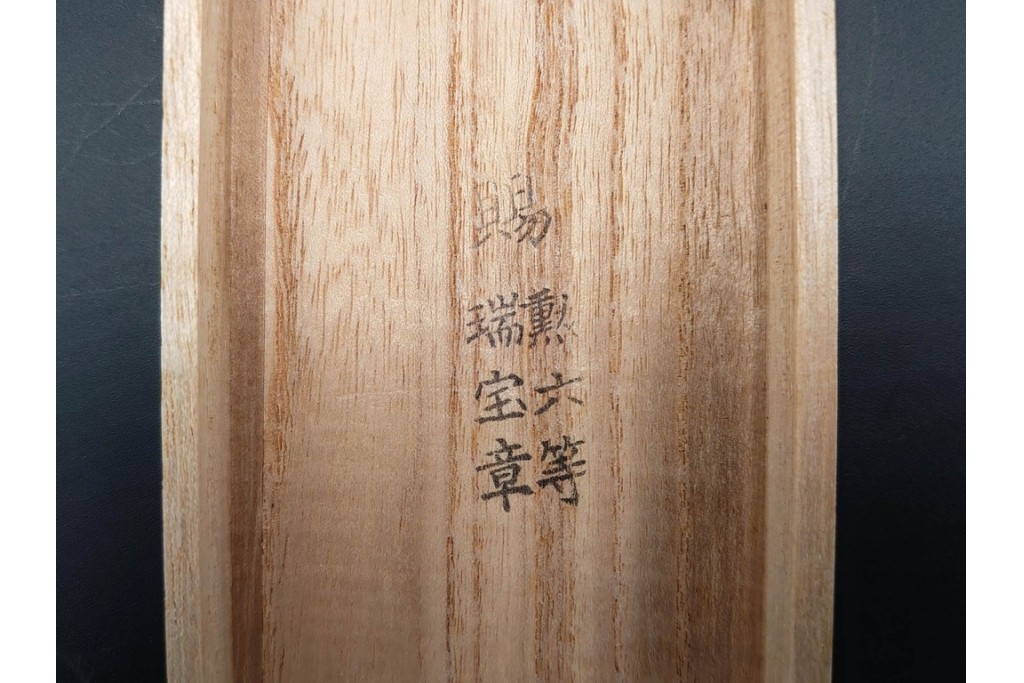 賜
勲六等
瑞宝章